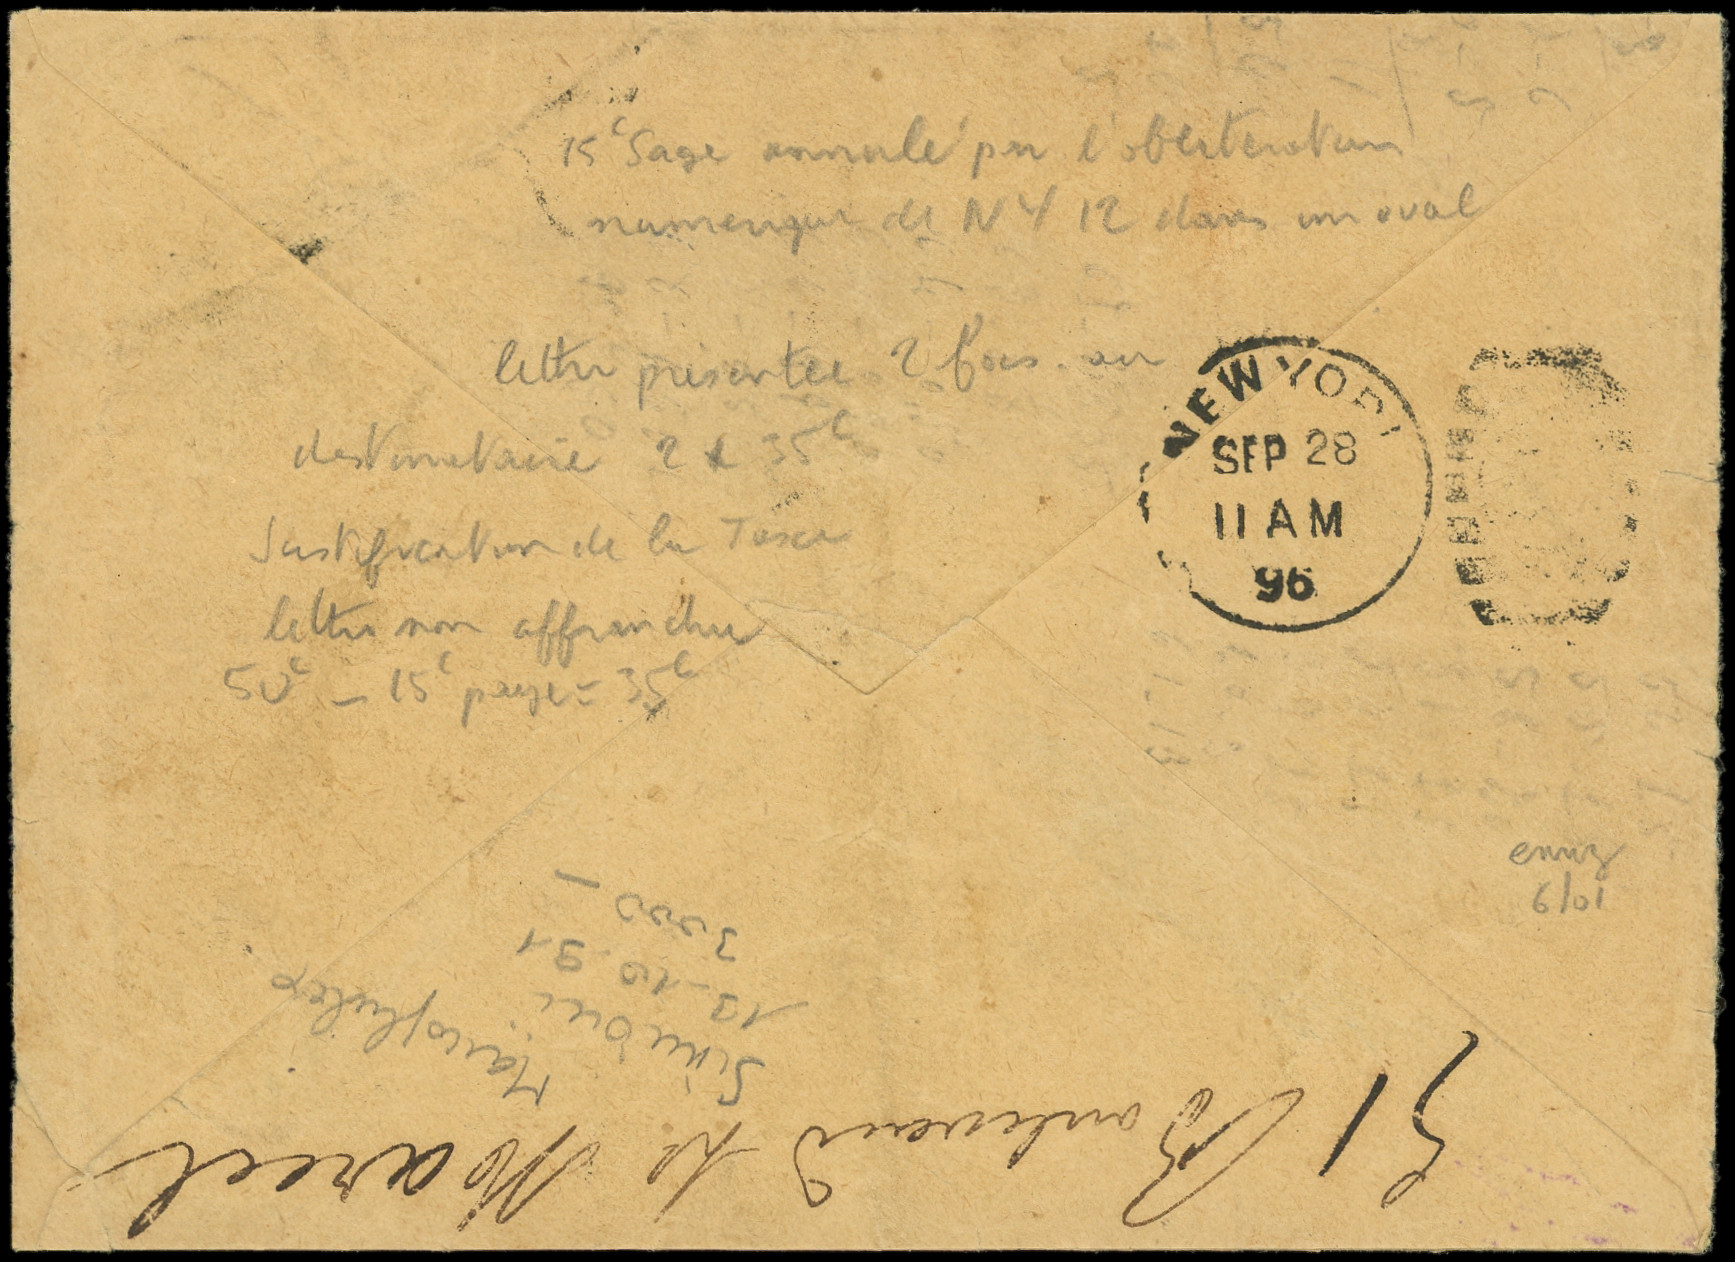 15c Sage annulé par l'obliteration
numerique de NY 12 dans un oval
lettre presentee 2 fois au
destinataire 2 x 35c
Justification de la Taxe
lettre non affranchie
50c - 15c payé = 35c
NEW YORK
SEP 28
11 AM
96
6/01
Marcophilex
12-10-91
3000 -
51 Boulevard St Marcel